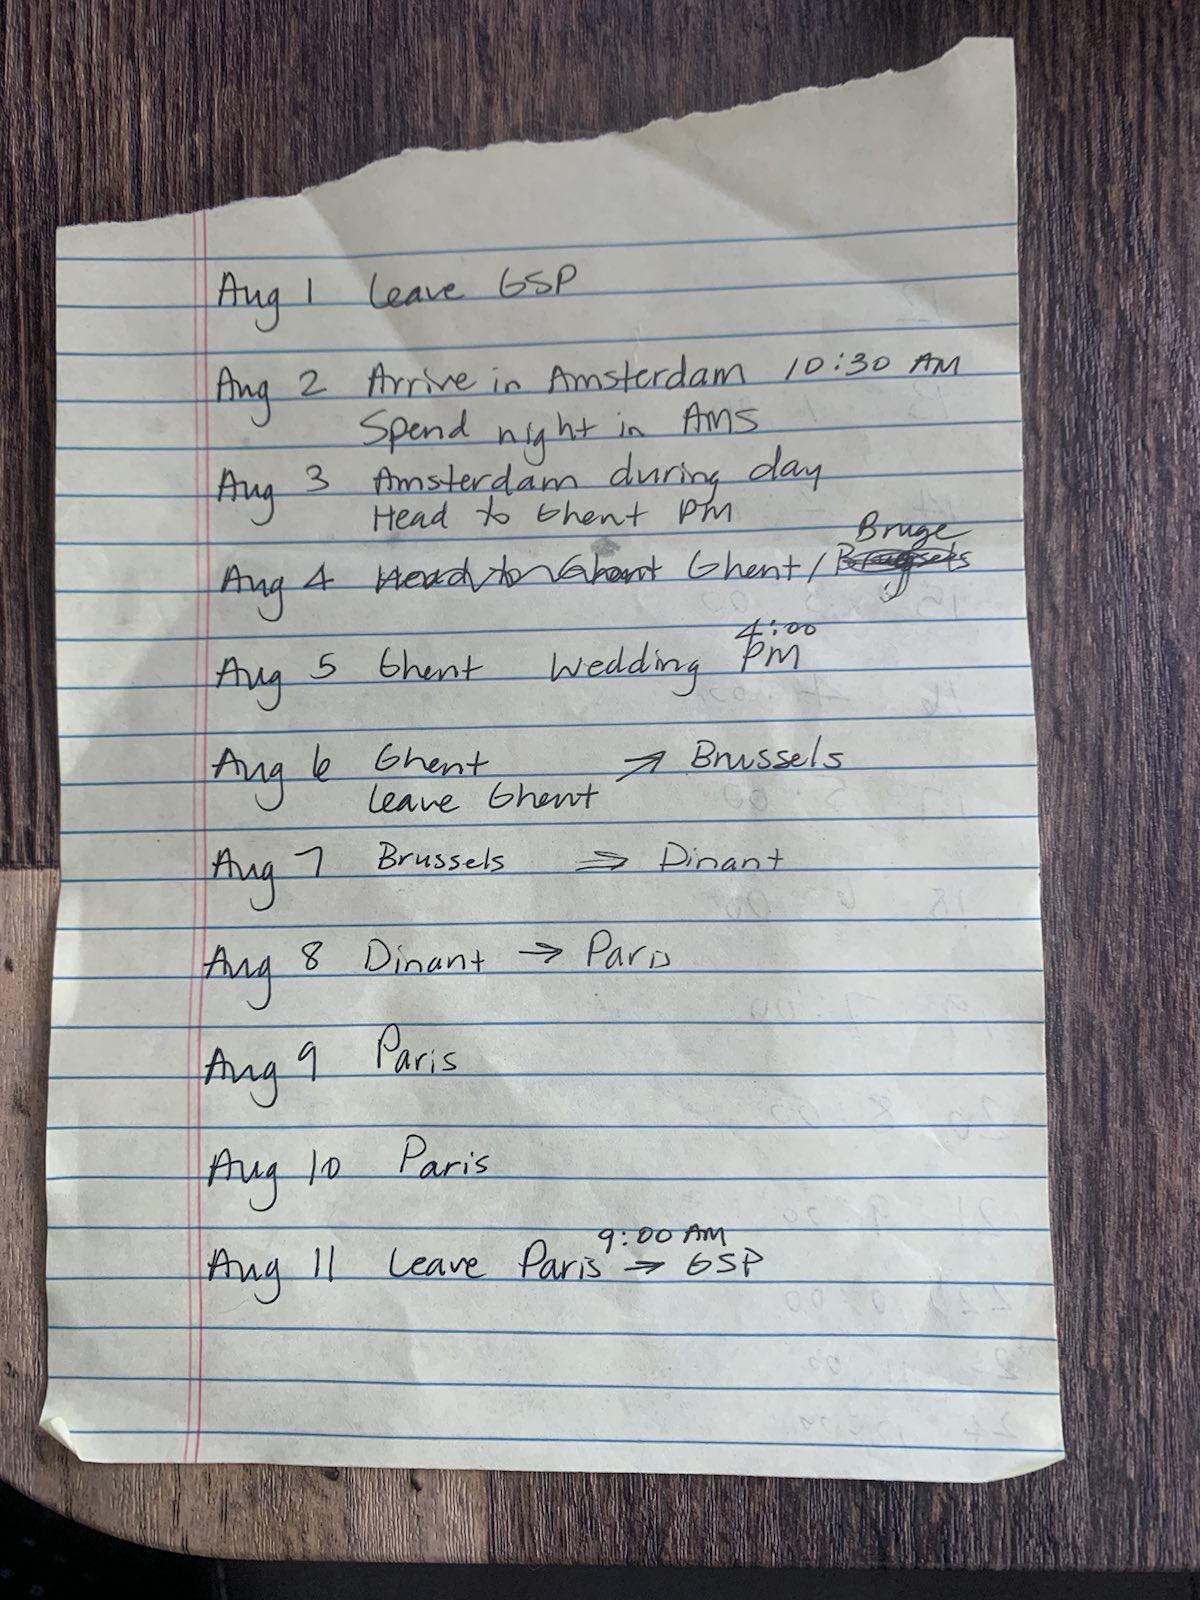 Aug 1 Leave GSP
Aug 2 Arrive in Amsterdam 10:30 AM
Spend night in AMS
Aug 3 Amsterdam during day
Head to Ghent PM
Bruge
Aug 4 Head to Ghent Ghent/Brussels
4:00
Aug 5 Ghent Wedding PM
Aug 6 Ghent → Brussels
Leave Ghent
Aug 7 Brussels ⇒ Dinant
Aug 8 Dinant → Paris
Aug 9 Paris
Aug 10 Paris
9:00 AM
Aug 11 Leave Paris → GSP